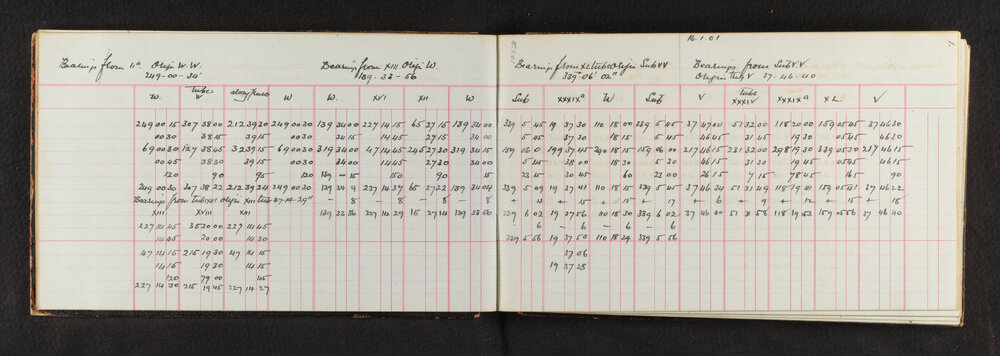 16.1.01
Bearings from 11a Origin W.W.
249-00-30
Bearings from XIII Origin W.
139-33-56
Bearings from XL tube Origin Sub VV
339° 06' 02"
Bearings from Sub V.V
Origin tub V 37-46-40
W. tube V W W XVI XII W
249 00 15 307 38 00 212 39 30 249 00 30 139 34 00 227 14 15 65 27 15 139 34 00
00 30 38 15 39 15 00 30 34 15 14 45 27 15 34 00
69 00 30 127 38 45 32 39 15 69 00 30 319 34 00 47 14 45 245 27 30 319 34 15
00 45 38 30 39 15 00 30 34 00 14 45 27 30 34 00
120 90 95 120 139 - 15 150 90 15
249 00 30 307 38 22 212 39 24 249 00 30 139 34 4 227 14 37 65 27 22 139 34 04
Bearings from tub XVI Origin XIII tub 47-14-29"
- 8 - 8 - 8 - 8
XIII XVIII XIII
139 33 56 227 14 29 65 27 14 139 33 56
227 14 45 35 20 00 227 14 45
14 45 20 00 14 30
47 14 15 215 19 30 47 14 15
14 15 19 30 14 15
120 79 00 45
227 14 30 215 19 45 227 14 27
Sub XXXIXa W Sub V tube XXXIV XXXIXa XL V
339 5 45 19 37 30 110 18 00 339 5 45 37 47 00 51 32 00 118 20 00 159 05 45 37 46 30
5 45 37 30 18 15 5 45 46 45 31 45 19 30 05 45 46 30
159 06 0 199 37 45 290 18 15 159 06 00 217 46 15 231 32 00 298 19 30 339 05 30 217 46 15
5 45 38 00 18 30 5 30 46 15 31 30 19 45 05 45 46 15
23 15 30 45 60 23 00 26 15 7 15 78 45 165 90
339 5 49 19 37 41 110 18 15 339 5 45 37 46 34 51 31 49 118 19 41 159 05 41 37 46 22
+ 13 + 15 + 15 + 17 + 6 + 9 + 12 + 15 + 18
339 6 02 19 37 56 110 18 30 339 6 02 37 46 40 51 31 58 118 19 53 159 05 56 37 46 40
- 6 - 6 - 6
339 5 56 19 37 50 110 18 24 339 5 56
37 06
19 37 28